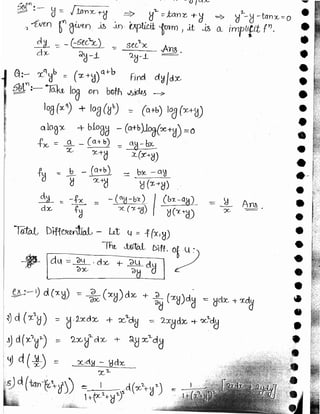 Solⁿ:- y = √(tanx + y) ⇒ y² = tanx + y ⇒ y² - y - tanx = 0
, -Even fⁿ given is in explicit form, it is a implicit fⁿ.
dy/dx = -(-sec²x)/(2y-1) = sec²x/(2y-1) Ans.
Q:- xᵃyᵇ = (x+y)ᵃ⁺ᵇ Find dy/dx
Solⁿ:- Take log on both sides →
log(xᵃ) + log(yᵇ) = (a+b) log(x+y)
a logx + b logy - (a+b).log(x+y) = 0
fx = a/x - (a+b)/(x+y) = (ay-bx)/(x(x+y))
fy = b/y - (a+b)/(x+y) = (bx-ay)/(y(x+y))
dy/dx = -fx/fy = -(ay-bx)/(x(x+y)) / (bx-ay)/(y(x+y)) = y/x Ans.
Total Differential - Let u = f(x,y)
The total Diff. of u :
du = ∂u/∂x . dx + ∂u/∂y dy
ex:- 1) d(xy) = ∂/∂x (xy)dx + ∂/∂y (xy)dy = ydx + xdy
2) d(x²y) = y.2xdx + x²dy = 2xydx + x²dy
3) d(x²y²) = 2xy²dx + 2yx²dy
4) d(y/x) = (xdy - ydx)/x²
5) d(tan⁻¹(x²+y²)) = 1/(1+(x²+y²)²) d(x²+y²) = 1/(1+(x²+y²)²)